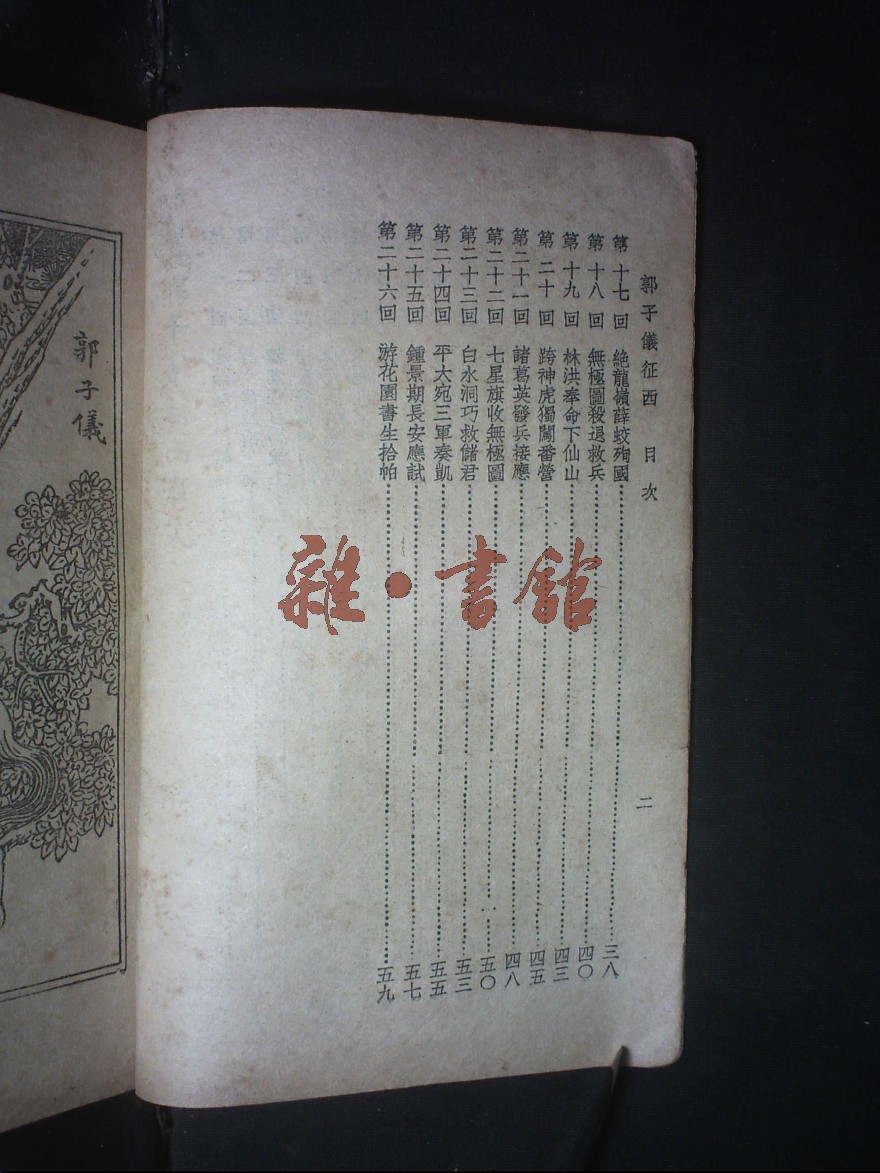 郭子儀征西　目次　二
第十七回　絶龍嶺薛蛟殉國……三八
第十八回　無極圖殺退救兵……四〇
第十九回　林洪奉命下仙山……四三
第二十回　跨神虎獨闖番營……四五
第二十一回　諸葛英發兵接應……四八
第二十二回　七星旗收無極圖……五〇
第二十三回　白水洞巧救儲君……五三
第二十四回　平大宛三軍奏凱……五五
第二十五回　鍾景期長安應試……五七
第二十六回　游花園書生拾帕……五九
郭子儀
雜・書館